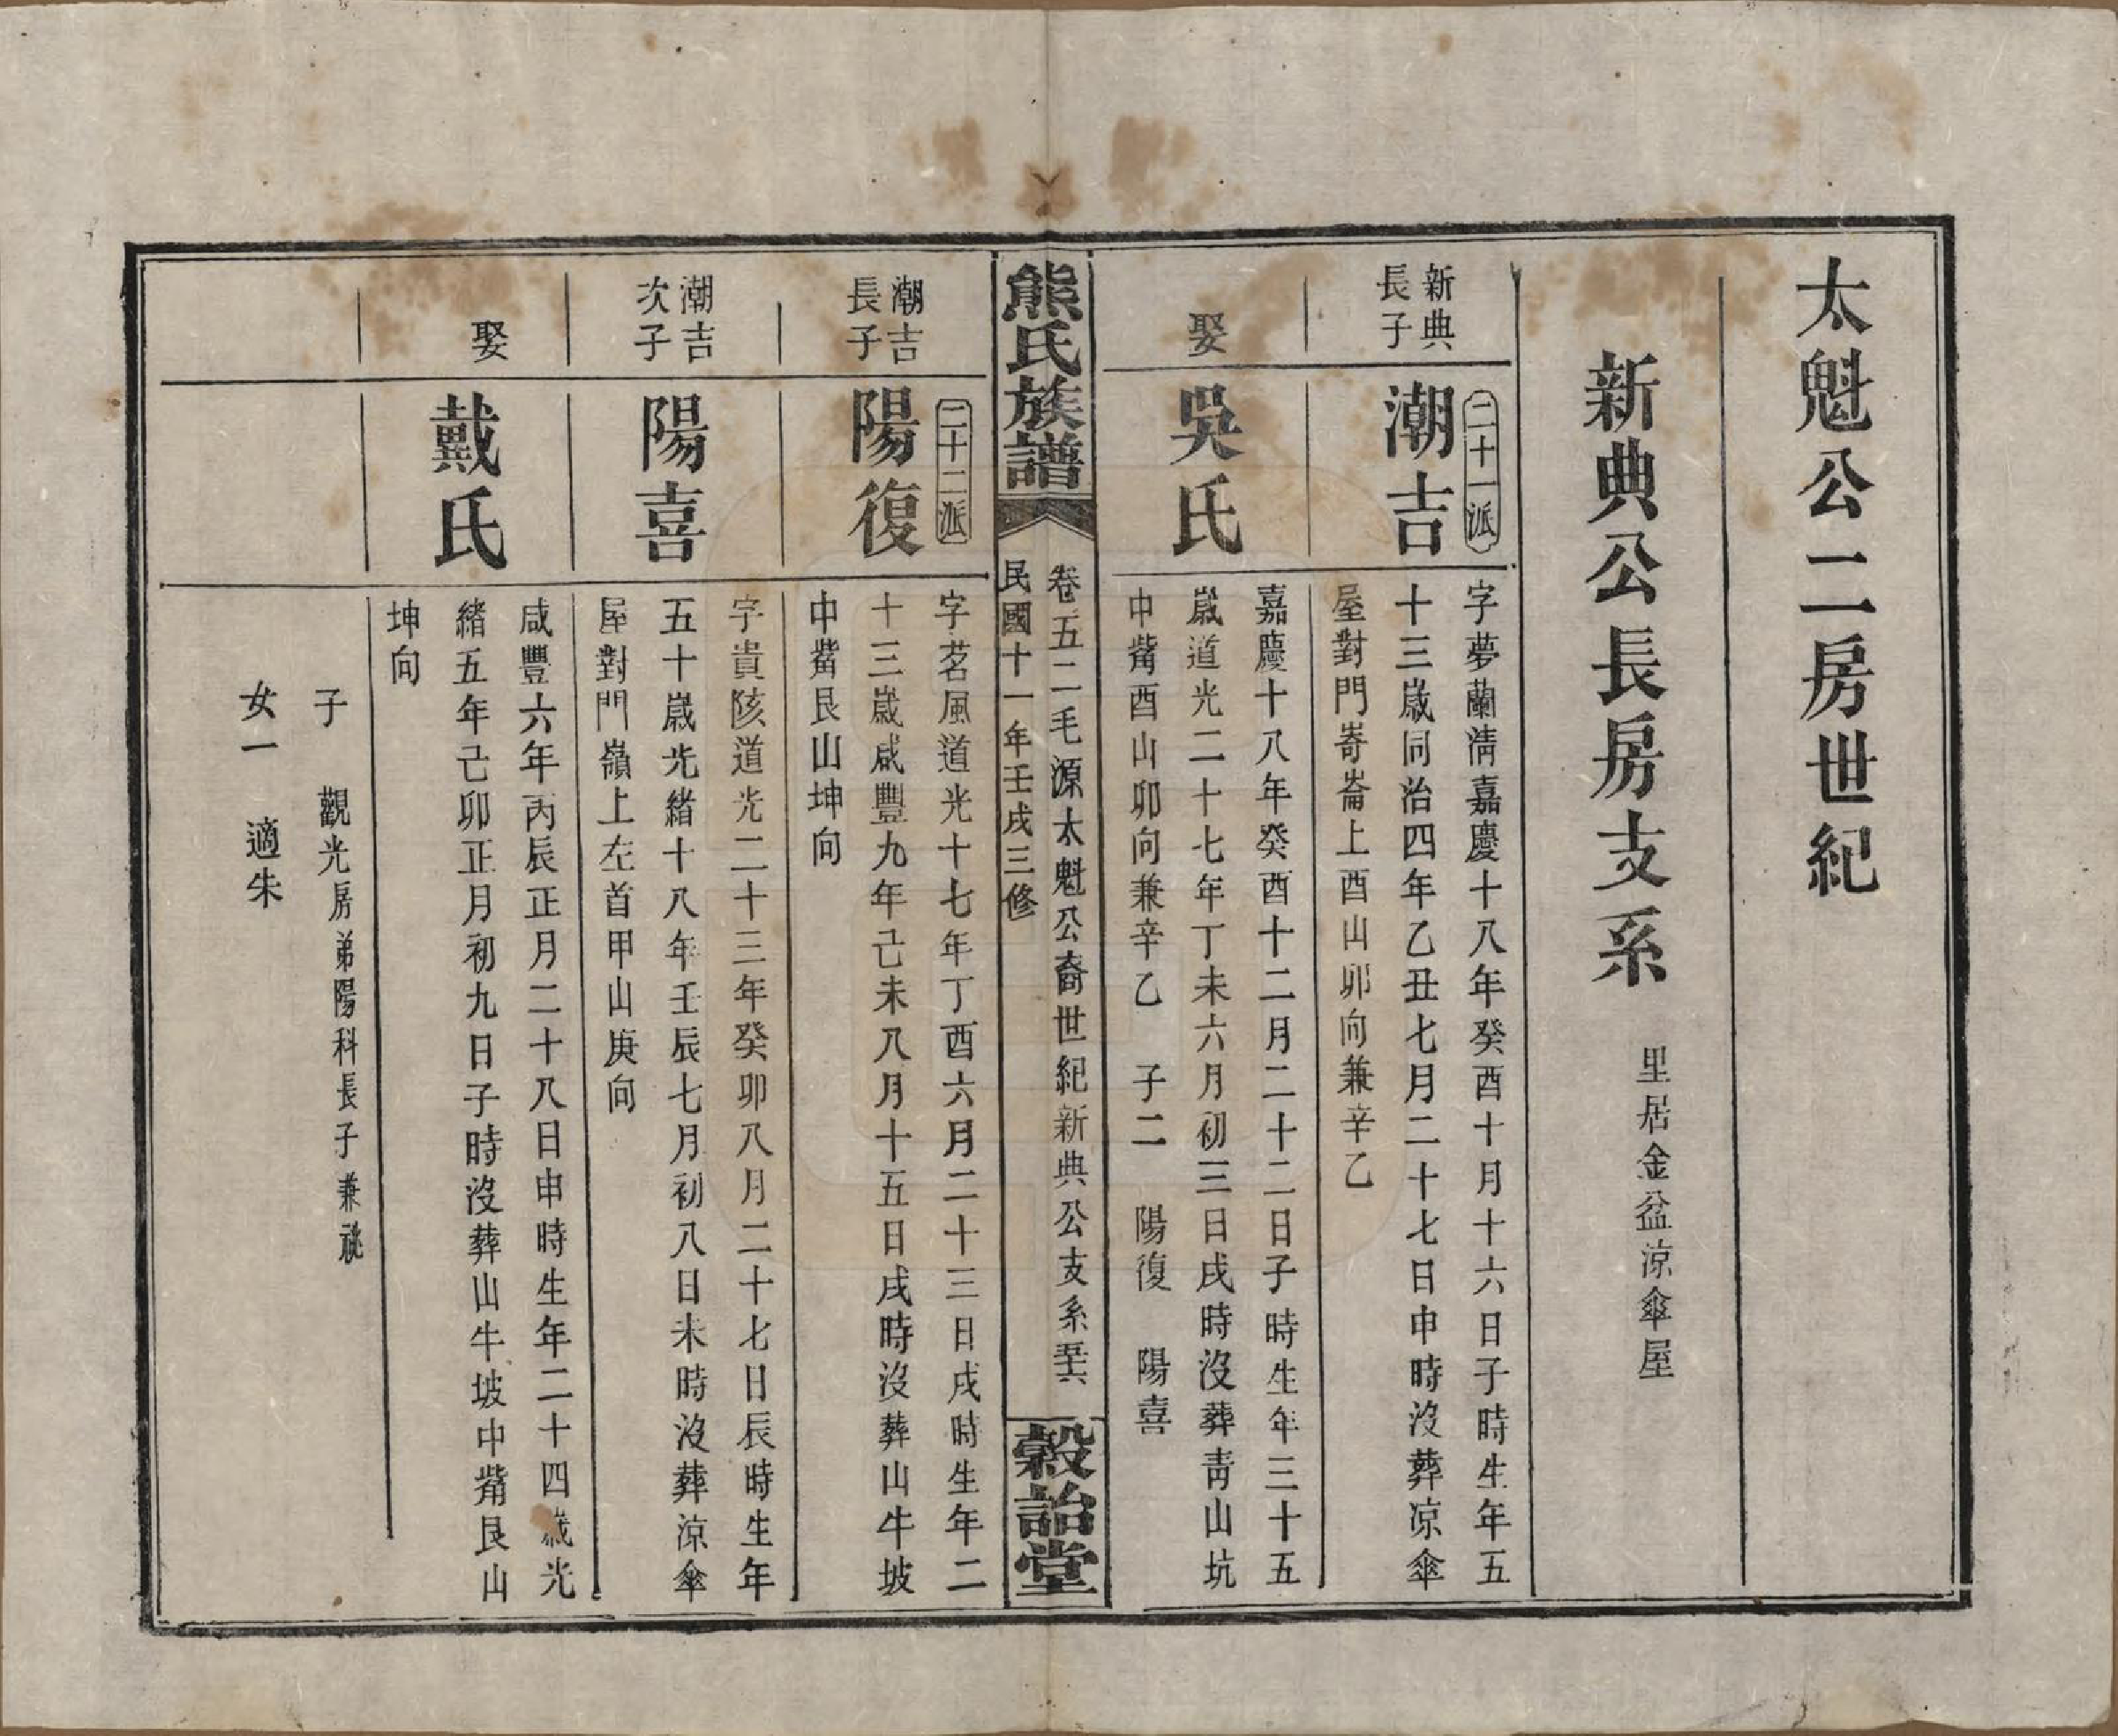 太魁公二房世紀
新典公長房支系 里居金盆涼傘屋
新典
長子
二十一派
潮吉
字夢蘭淸嘉慶十八年癸酉十月十六日子時生年五
十三歲同治四年乙丑七月二十七日申時沒葬凉傘
屋對門嵜崙上酉山卯向兼辛乙
娶
吳氏
嘉慶十八年癸酉十二月二十二日子時生年三十五
歲道光二十七年丁未六月初三日戌時沒葬靑山坑
中觜酉山卯向兼辛乙 子二 陽復 陽喜
熊氏族譜
卷五二毛源太魁公裔世紀新典公支系
民國十一年壬戌三修
穀詒堂
潮吉
長子
二十二派
陽復
字茗風道光十七年丁酉六月二十三日戌時生年二
十三歲咸豐九年己未八月十五日戌時沒葬山牛坡
中觜艮山坤向
潮吉
次子
陽喜
字貴陔道光二十三年癸卯八月二十七日辰時生年
五十歲光緒十八年壬辰七月初八日未時沒葬涼傘
屋對門嶺上左首甲山庚向
娶
戴氏
咸豐六年丙辰正月二十八日申時生年二十四歲光
緒五年己卯正月初九日子時沒葬山牛坡中觜艮山
坤向
子 觀光房弟陽科長子兼祧
女一 適朱